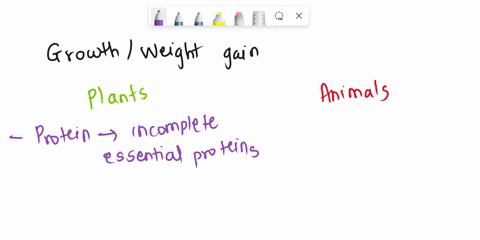 Growth/Weight gain
Plants
Animals
- Protein → incomplete
essential proteins